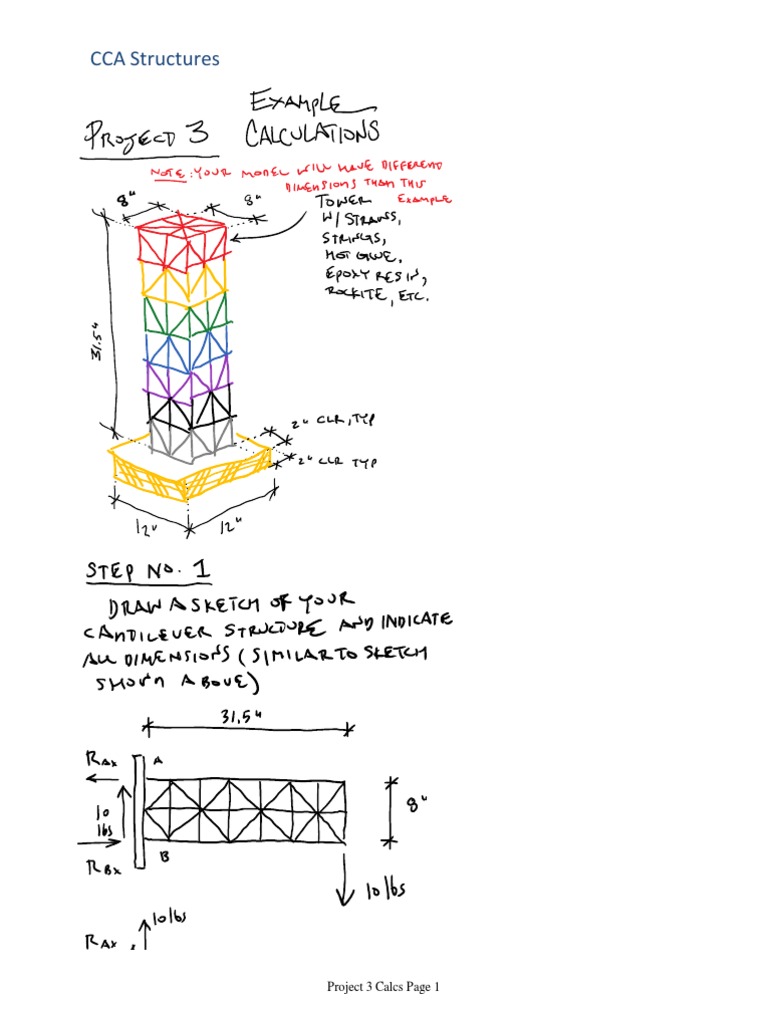 CCA Structures
EXAMPLE
PROJECT 3 CALCULATIONS
NOTE: YOUR MODEL WILL HAVE DIFFERENT
DIMENSIONS THAN THIS
EXAMPLE
8"
8"
TOWER
W/ STRAWS,
STRINGS,
HOT GLUE,
EPOXY RESIN,
ROCKITE, ETC.
31.5"
2" CLR, TYP
2" CLR TYP
12"
12"
STEP NO. 1
DRAW A SKETCH OF YOUR
CANTILEVER STRUCTURE AND INDICATE
ALL DIMENSIONS (SIMILAR TO SKETCH
SHOWN ABOVE)
31.5"
RAX
A
10
lbs
8"
B
RBX
10 lbs
10 lbs
RAX
Project 3 Calcs Page 1